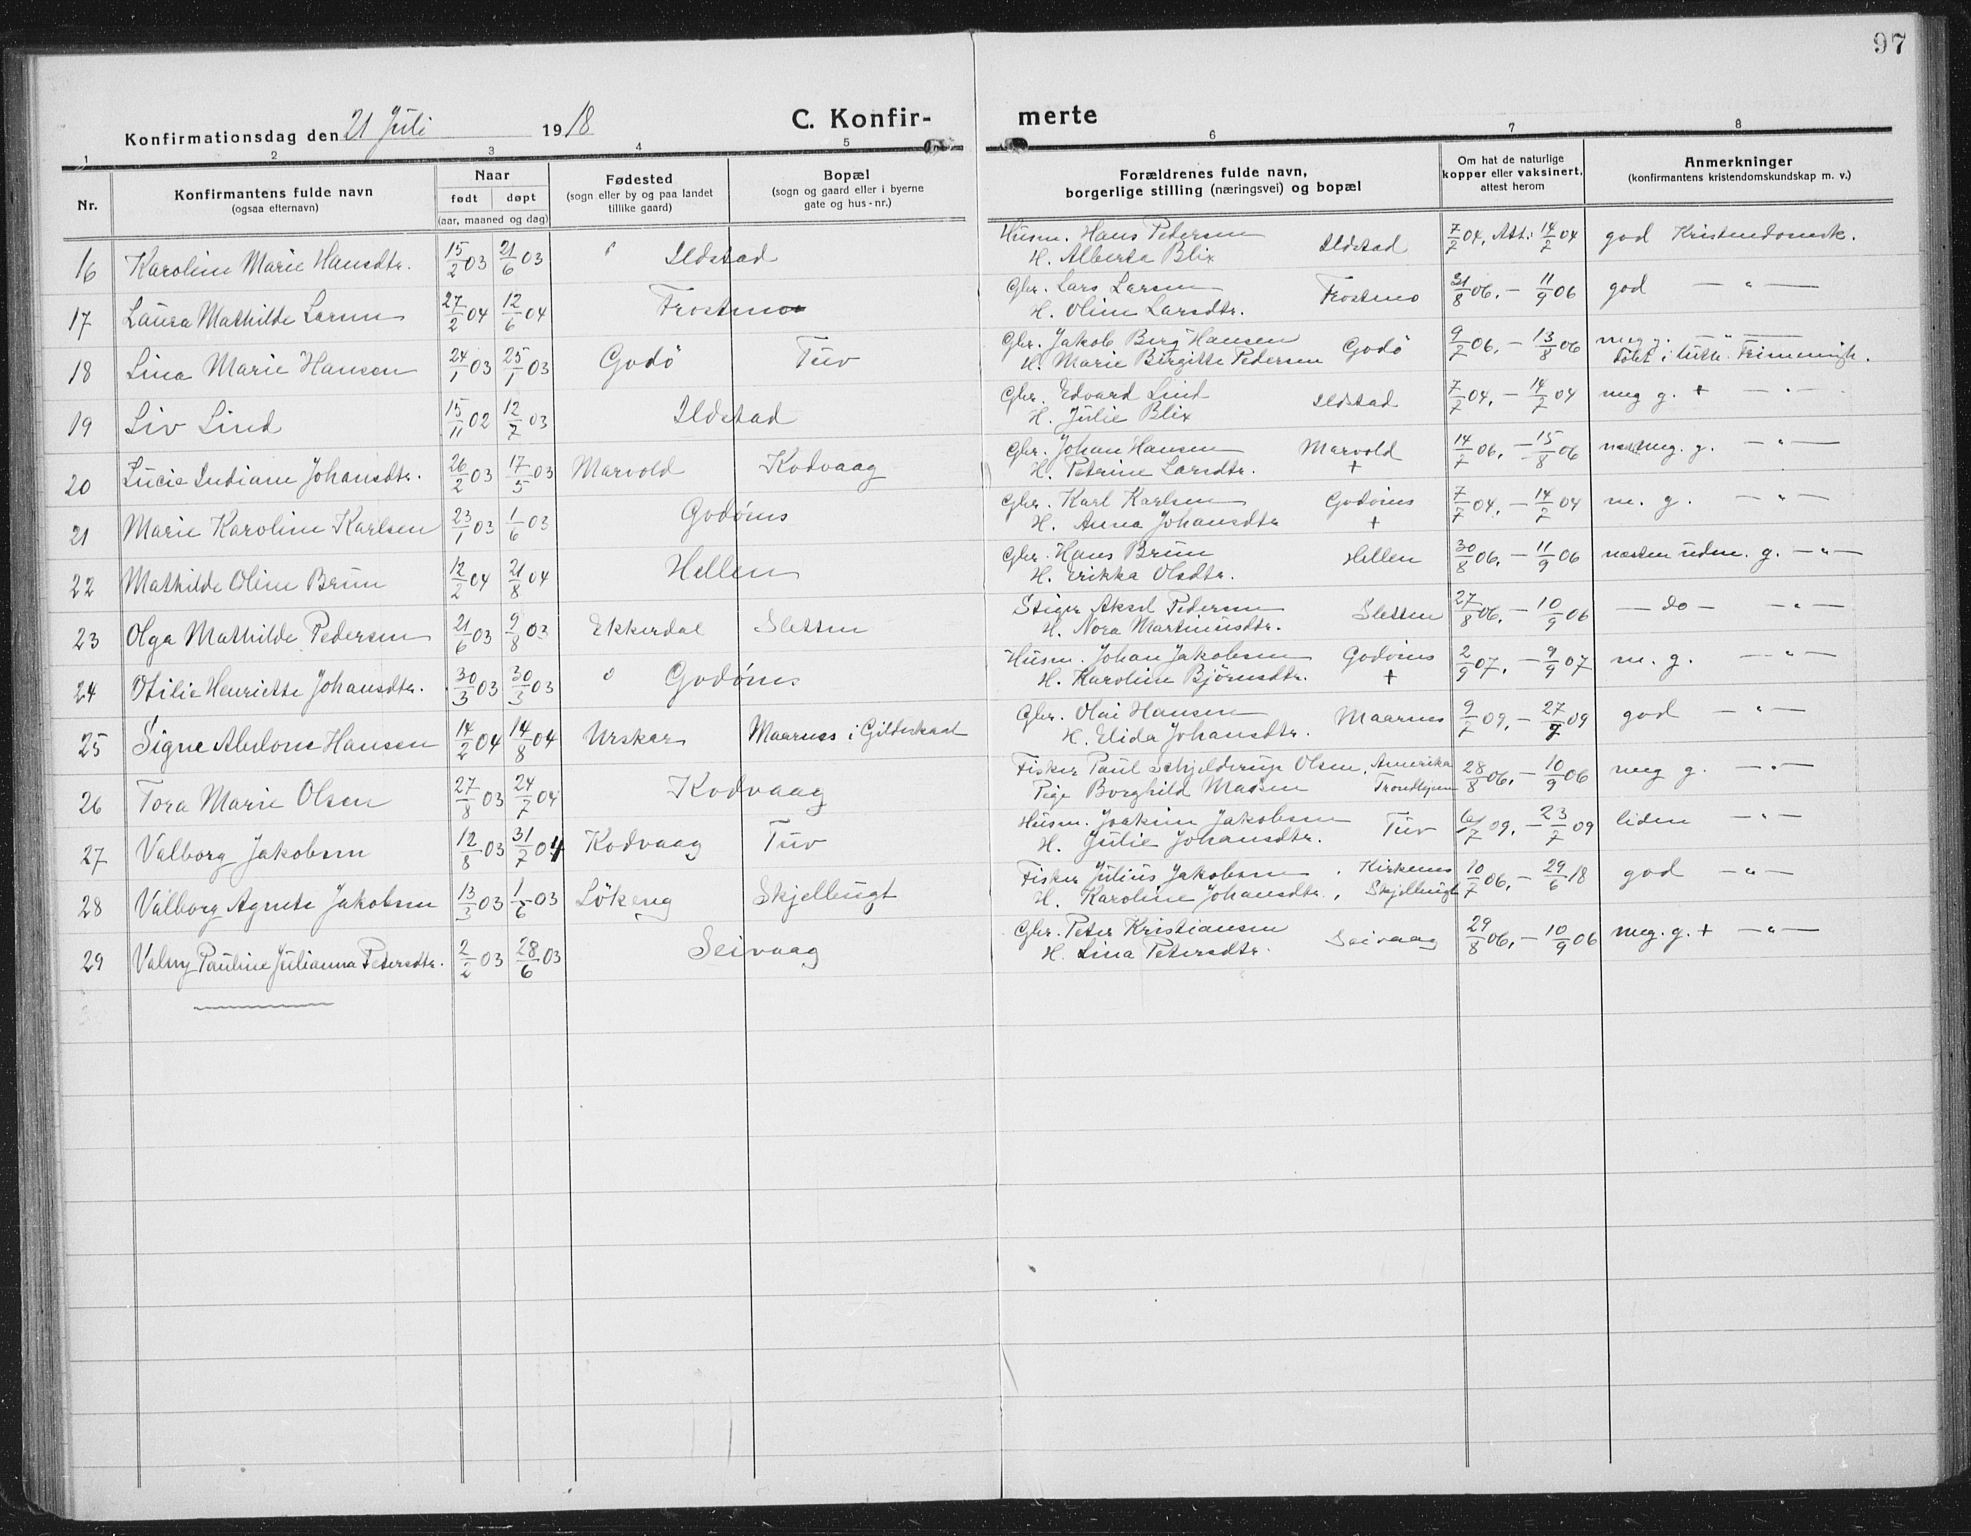 97
Konfirmationsdag den 21 Juli 1918
C. Konfir-
merte
1 2 3 4 5 6 7 8
Nr.
Konfirmantens fulde navn
(ogsaa efternavn)
Naar
født døpt
(aar, maaned og dag)
Fødested
(sogn eller by og paa landet
tillike gaard)
Bopæl
(sogn og gaard eller i byerne
gate og hus-nr.)
Forældrenes fulde navn,
borgerlige stilling (næringsvei) og bopæl
Om hat de naturlige
kopper eller vaksinert,
attest herom
Anmerkninger
(konfirmantens kristendomskundskap m. v.)
16 Karoline Marie Hansdtr. 15/2 03 21/6 03 " Ildstad Husm. Hans Pedersen Ildstad 7/7 04, Att: 14/7 04 god Kristendomsk.
H. Alberta Blix
17 Laura Mathilde Larsen 27/2 04 12/6 04 Frostmo Gbr. Lars Larsen Frostmo 31/8 06, – 11/9 06 god — " —
H. Oline Larsdtr.
18 Lina Marie Hansen 24/1 03 25/1 03 Godø Tuv Gbr. Jakob Berg Hansen Godø 9/7 06, – 13/8 06 meg g. — " —
H. Marie Birgitte Pedersen Døbt i luth. Frimenigh.
19 Liv Lind 15/11 02 12/7 03 Ildstad Gbr. Edvard Lind Ildstad 7/7 04, – 14/7 04 meg g. + — " —
H. Julie Blix
20 Lucie Indiane Johansdtr. 26/2 03 17/5 03 Marvold Kodvaag Gbr. Johan Hansen Marvold 14/7 06, – 15/8 06 meg. g. — " —
H. Petrine Larsdtr. +
21 Marie Karoline Karlsen 23/1 03 1/6 03 Godønes Gbr. Karl Karlsen Godønes 7/7 04, – 14/7 04 m. g. — " —
H. Anna Johansdtr +
22 Mathilde Oline Brun 12/2 04 21/8 04 Hellen Gbr. Hans Brun Hellen 30/8 06, – 11/9 06 næsten uden. g. — " —
H. Erikka Olsdtr.
23 Olga Mathilde Pedersen 21/6 03 9/8 03 Ekkerdal Sletten Stiger Aksel Pedersen Sletten 27/8 06, – 10/9 06 — do — — " —
H. Nora Martinusdtr.
24 Otilie Henriette Johansdtr. 30/3 03 30/3 03 " Godønes Husm. Johan Jakobsen Godønes 2/9 07, – 9/9 07 m. g. — " —
H. Karoline Bjørnsdtr. +
25 Signe Abelone Hansen 14/2 04 14/8 04 Urskar Maarnes i Gildeskaal Gbr. Olai Hansen Maarnes 9/7 09, – 27/7 09 god — " —
H. Elida Johansdtr.
26 Tora Marie Olsen 27/8 03 24/7 04 Kodvaag Fisker Paul Schjelderup Olsen, Amerika 28/8 06, – 10/9 06 meg g. — " —
Pige Borghild Madsen Trondhjem
27 Valborg Jakobsen 12/8 03 31/7 04 Kodvaag Tuv Husm. Joakim Jakobsen Tuv /7 09, – 23/7 09 liden — " —
H. Julie Johansdtr.
28 Valborg Agnete Jakobsen 13/3 03 1/6 03 Løkeng Skjelbugt Fisker Julius Jakobsen, Kirkenes 10/7 06, – 29/6 18 god — " —
H. Karoline Johansdtr., Skjelbugt
29 Valmy Pauline Julianna Petersdtr. 2/2 03 28/6 03 Seivaag Gbr. Peter Kristiansen Seivaag 29/8 06, – 10/9 06 meg. g. + — " —
H. Lina Petersdtr.